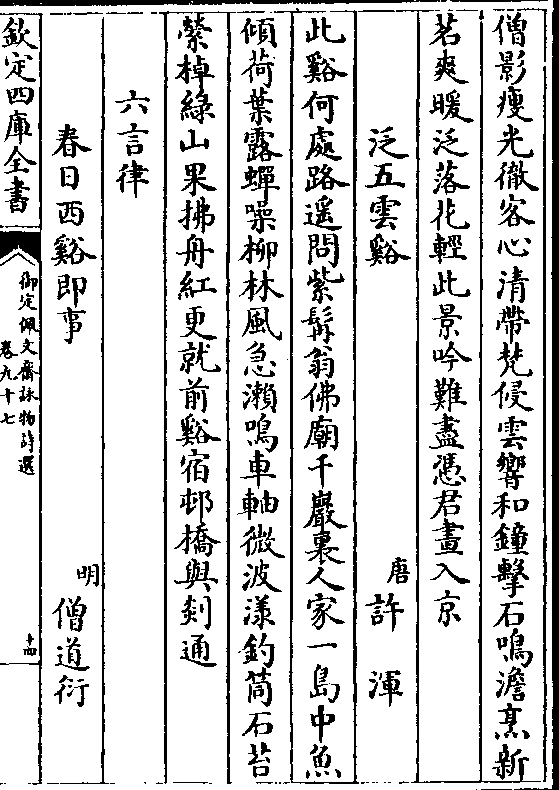 僧影瘦光徹客心清帶梵侵雲響和鐘擊石鳴澹烹新
茗爽暖泛落花輕此景吟難盡憑君畫入京
泛五雲谿
唐許渾
此谿何處路遥問紫髯翁佛廟千巖裏人家一島中魚
傾荷葉露蟬噪柳林風急瀨鳴車軸微波漾釣筒石苔
縈棹綠山果拂舟紅更就前谿宿邨橋與剡通
六言律
春日西谿即事
明僧道衍
欽定四庫全書
御定佩文齋詠物詩選
卷九十七
十四